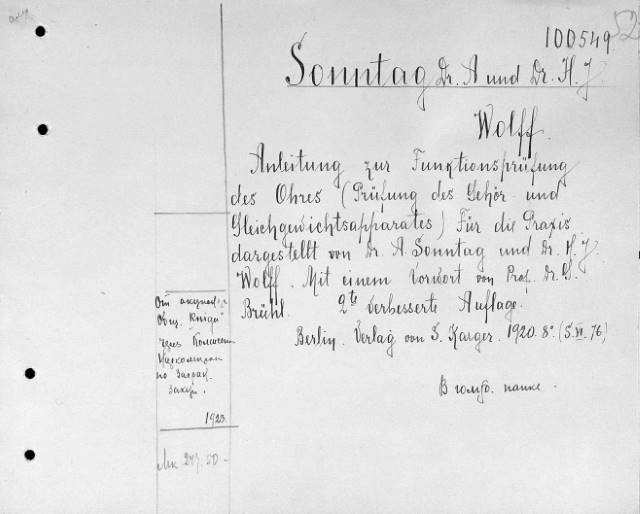 100549.
52
Sonntag Dr. A und Dr. H. J
Wolff.
Anleitung zur Funktionsprüfung
des Ohres (Prüfung des Gehör- und
Gleichgewichtsapparates) Für die Praxis
dargestellt von Dr. A. Sonntag und Dr. H. J.
Wolff. Mit einem Vorwort von Prof. Dr. G.
Brühl. 2te verbesserte Auflage.
Berlin. Verlag von S. Karger. 1920. 8º. (S. VI. 76)
В папке.
От
Общ. Kniga
через
по Заграк.
1923.
Mk 247.50-